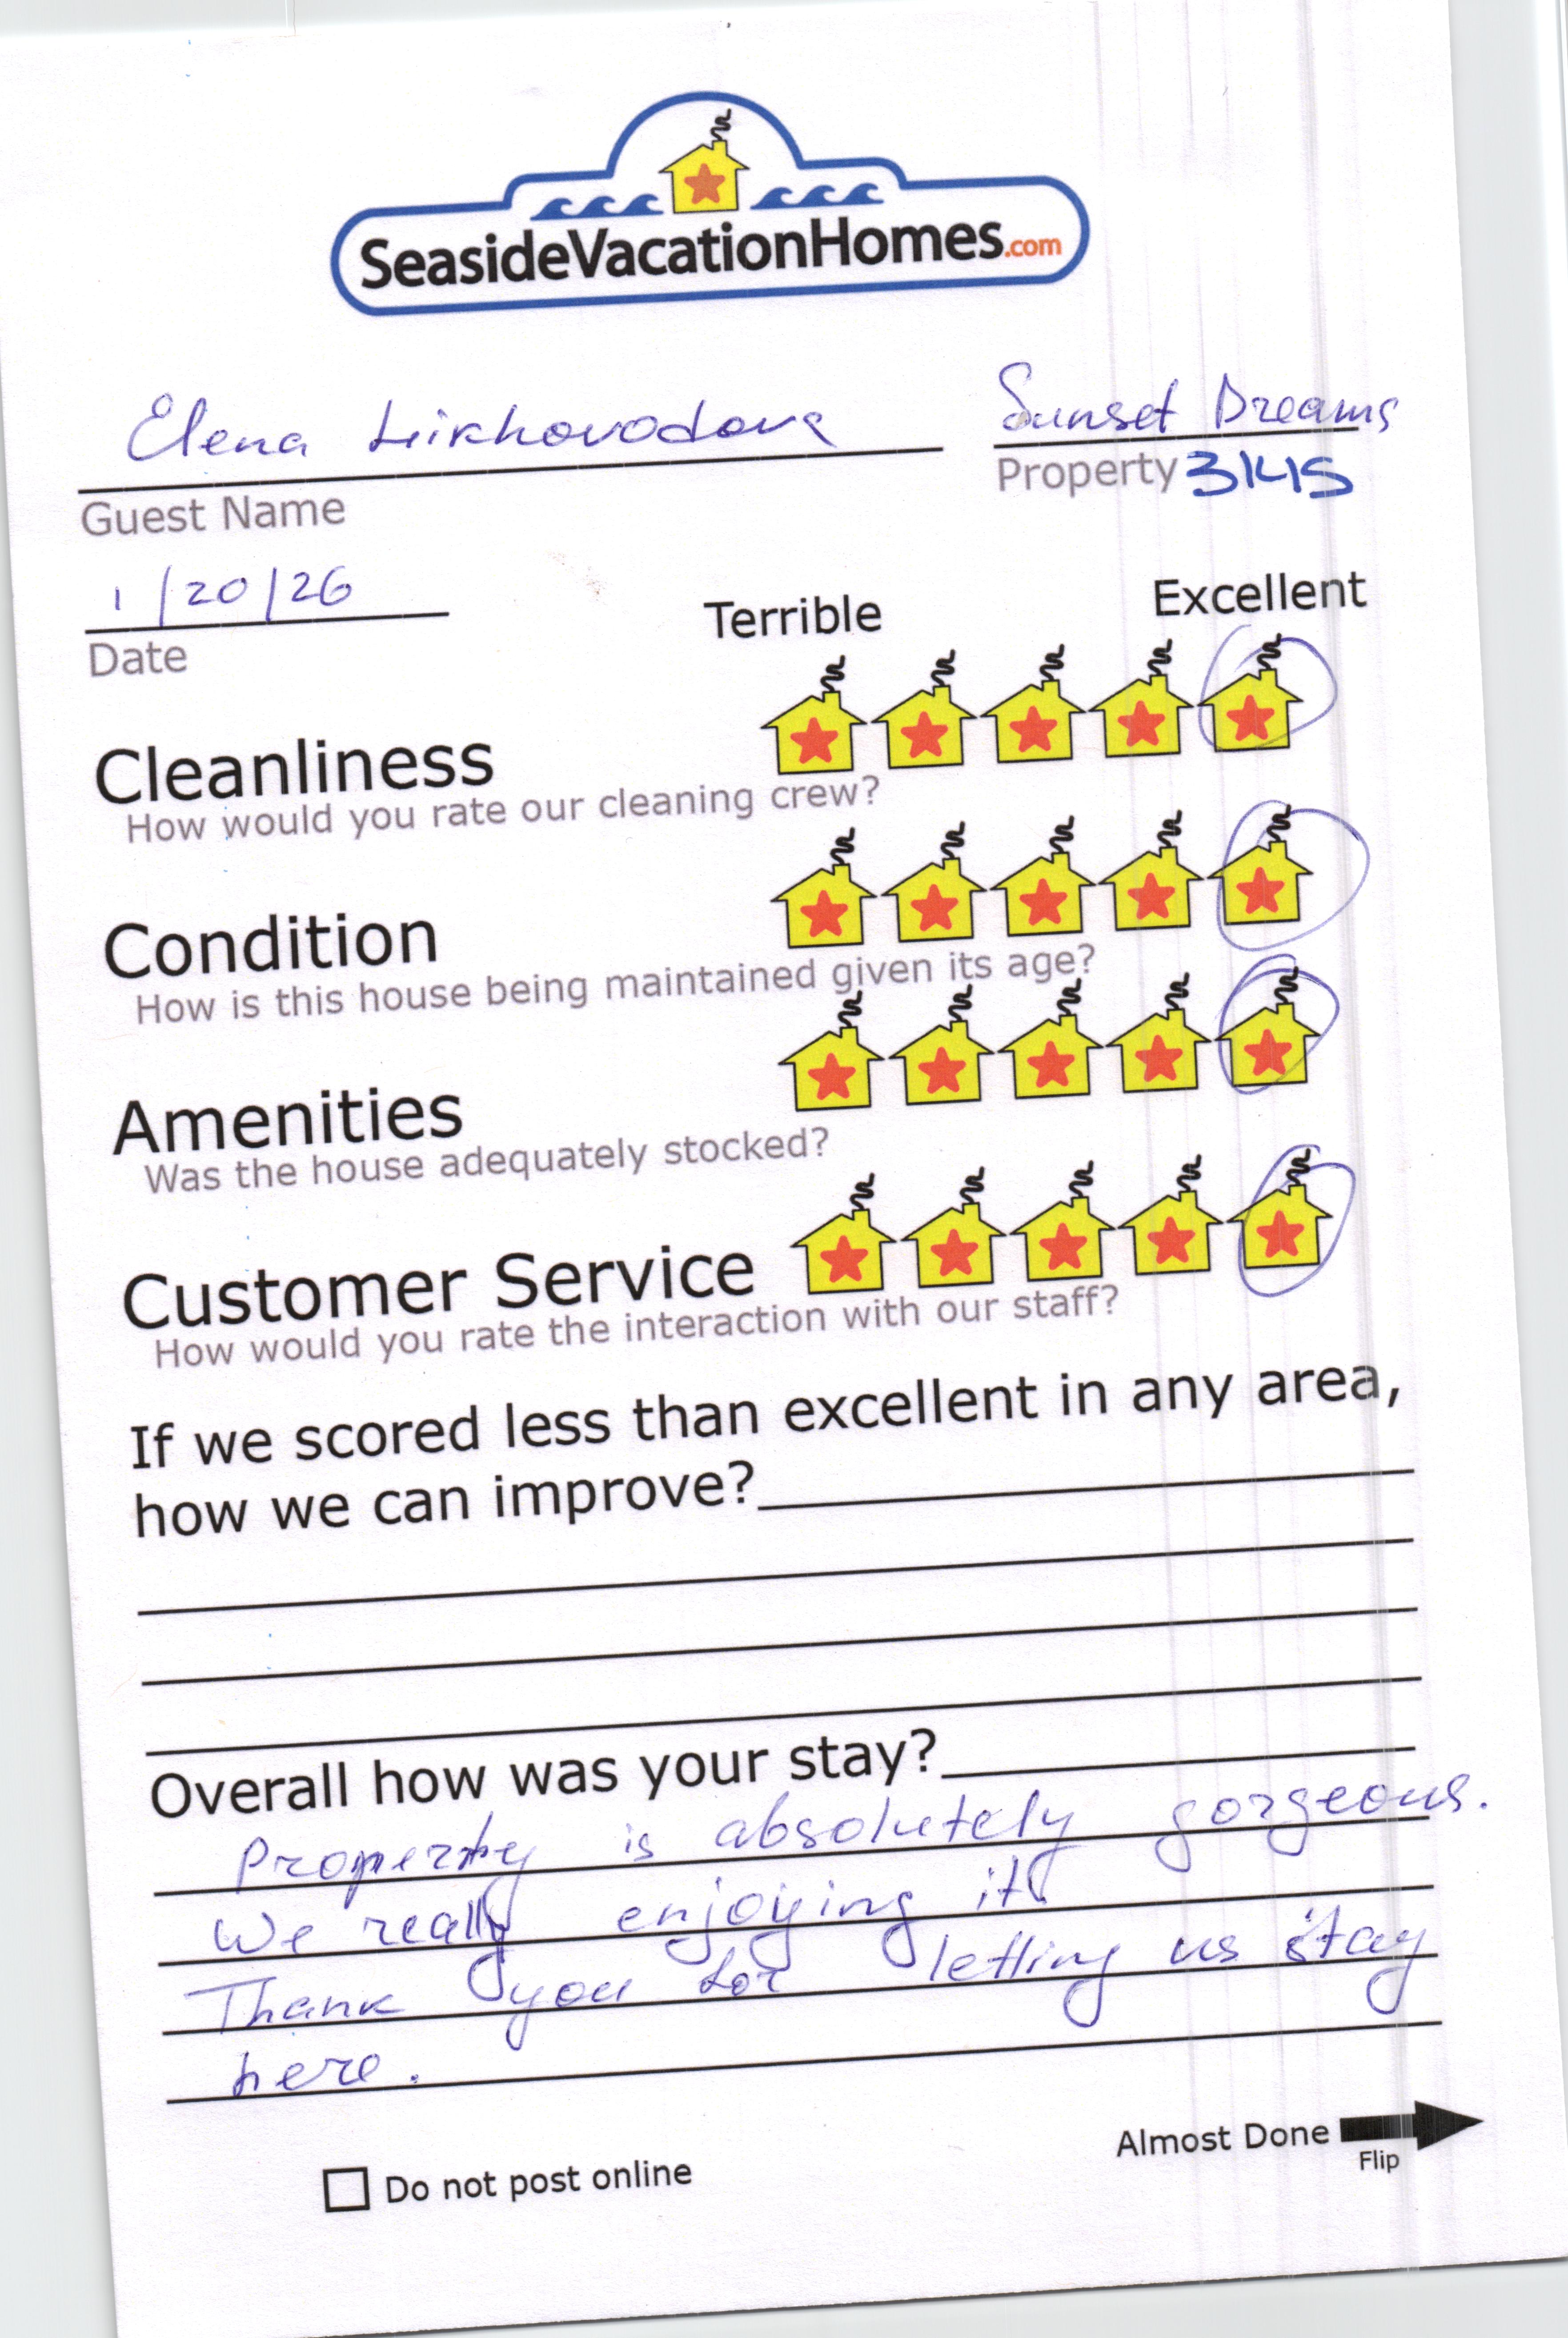 SeasideVacationHomes.com
Elena Likhovodova
Sunset Dreams
Guest Name
Property 3145
1/20/26
Date
Terrible
Excellent
Cleanliness
How would you rate our cleaning crew?
Condition
How is this house being maintained given its age?
Amenities
Was the house adequately stocked?
Customer Service
How would you rate the interaction with our staff?
If we scored less than excellent in any area,
how we can improve?
Overall how was your stay?
Property is absolutely gorgeous.
We really enjoying it!
Thank you for letting us stay
here.
Do not post online
Almost Done
Flip